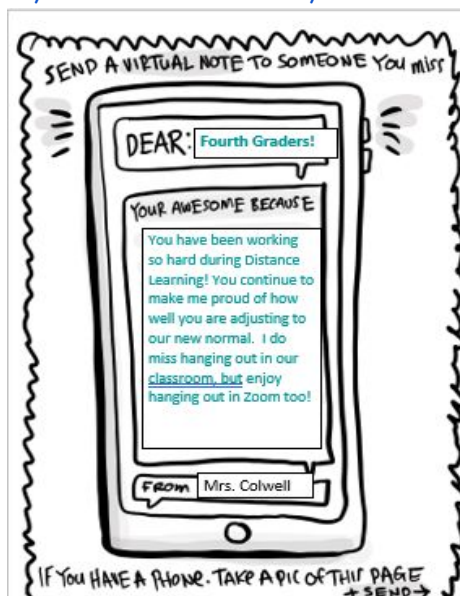 SEND A VIRTUAL NOTE TO SOMEONE YOU MISS
DEAR: Fourth Graders!
YOUR AWESOME BECAUSE
You have been working
so hard during Distance
Learning! You continue to
make me proud of how
well you are adjusting to
our new normal.  I do
miss hanging out in our
classroom, but enjoy
hanging out in Zoom too!
FROM Mrs. Colwell
IF YOU HAVE A PHONE. TAKE A PIC OF THIS PAGE
+ SEND →